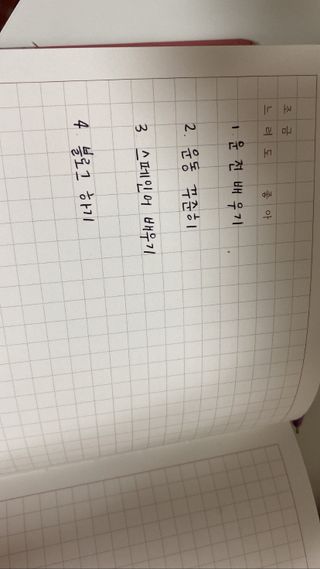 조금
느려도 좋아
1. 운전 배우기
2. 운동 꾸준히
3 스페인어 배우기
4. 블로그 하기